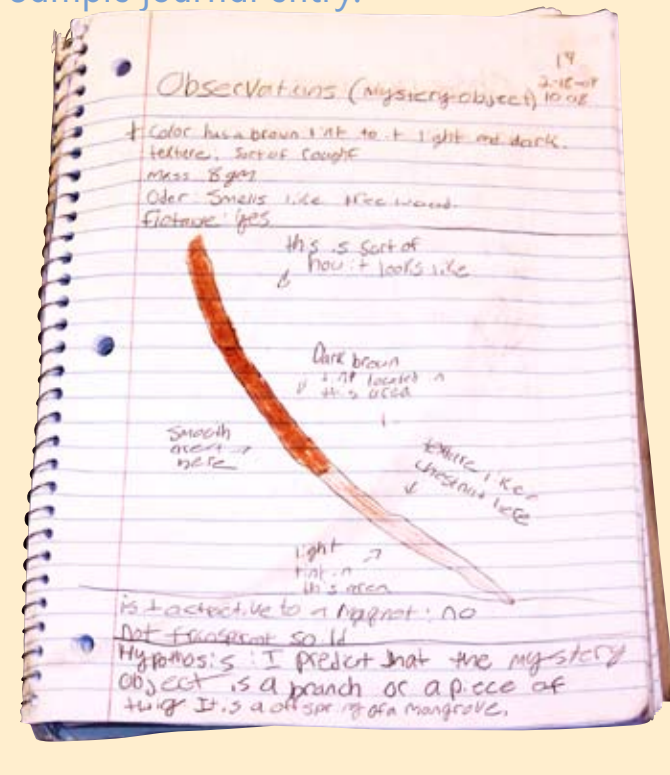 Sample journal entry:
19
2-18-09
10:08
Observations (Mystery object)
Color has a brown tint to it light and dark.
texture: Sort of rough
mass 8gm
Odor: Smells like tree wood.
Picture: yes
this is sort of
how it looks like
Dark brown
tint located in
this area
Smooth
area
here
texture like a
chestnut here
light
tint in
this area
is it attractive to a magnet: no
not transparent solid
Hypothosis: I predict that the mystery
object is a branch or a piece of
twig It is a offspring of a mangrove.